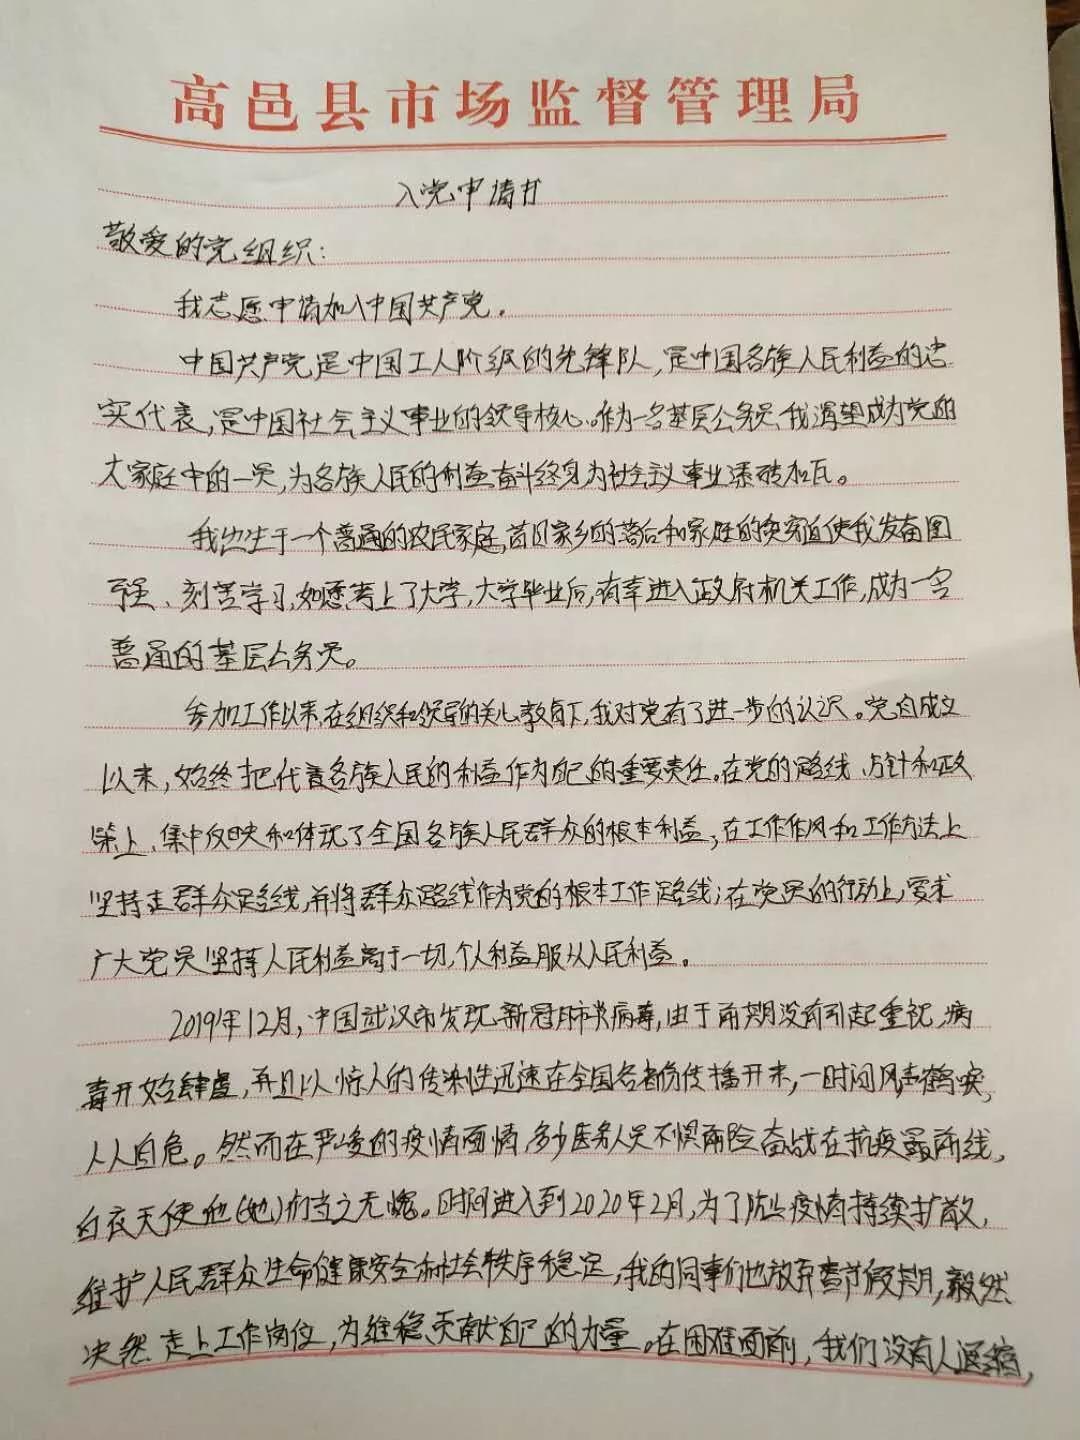 高邑县市场监督管理局
入党申请书
敬爱的党组织：
我志愿申请加入中国共产党。
中国共产党是中国工人阶级的先锋队，是中国各族人民利益的忠
实代表，是中国社会主义事业的领导核心。作为一名基层公务员，我渴望成为党的
大家庭中的一员，为各族人民的利益奋斗终身为社会主义事业添砖加瓦。
我出生于一个普通的农民家庭，昔日家乡的落后和家庭的贫穷迫使我发奋图
强、刻苦学习，如愿考上了大学，大学毕业后，有幸进入政府机关工作，成为一名
普通的基层公务员。
参加工作以来，在组织和领导的关心教育下，我对党有了进一步的认识。党自成立
以来，始终把代表各族人民的利益作为自己的重要责任。在党的路线、方针和政
策上，集中反映和体现了全国各族人民群众的根本利益；在工作作风和工作方法上
坚持走群众路线，并将群众路线作为党的根本工作路线；在党员的行动上，要求
广大党员坚持人民利益高于一切，个人利益服从人民利益。
2019年12月，中国武汉市发现新冠肺炎病毒，由于前期没有引起重视，病
毒开始肆虐，并且以惊人的传染性迅速在全国各省份传播开来，一时间风声鹤唳，
人人自危。然而在严峻的疫情面前，多少医务人员不惧艰险奋战在抗疫最前线，
白衣天使他(她)们当之无愧。时间进入到2020年2月，为了防止疫情持续扩散，
维护人民群众生命健康安全和社会秩序稳定，我的同事们也放弃春节假期，毅然
决然走上工作岗位，为维稳贡献自己的力量。在困难面前，我们没有人退缩，